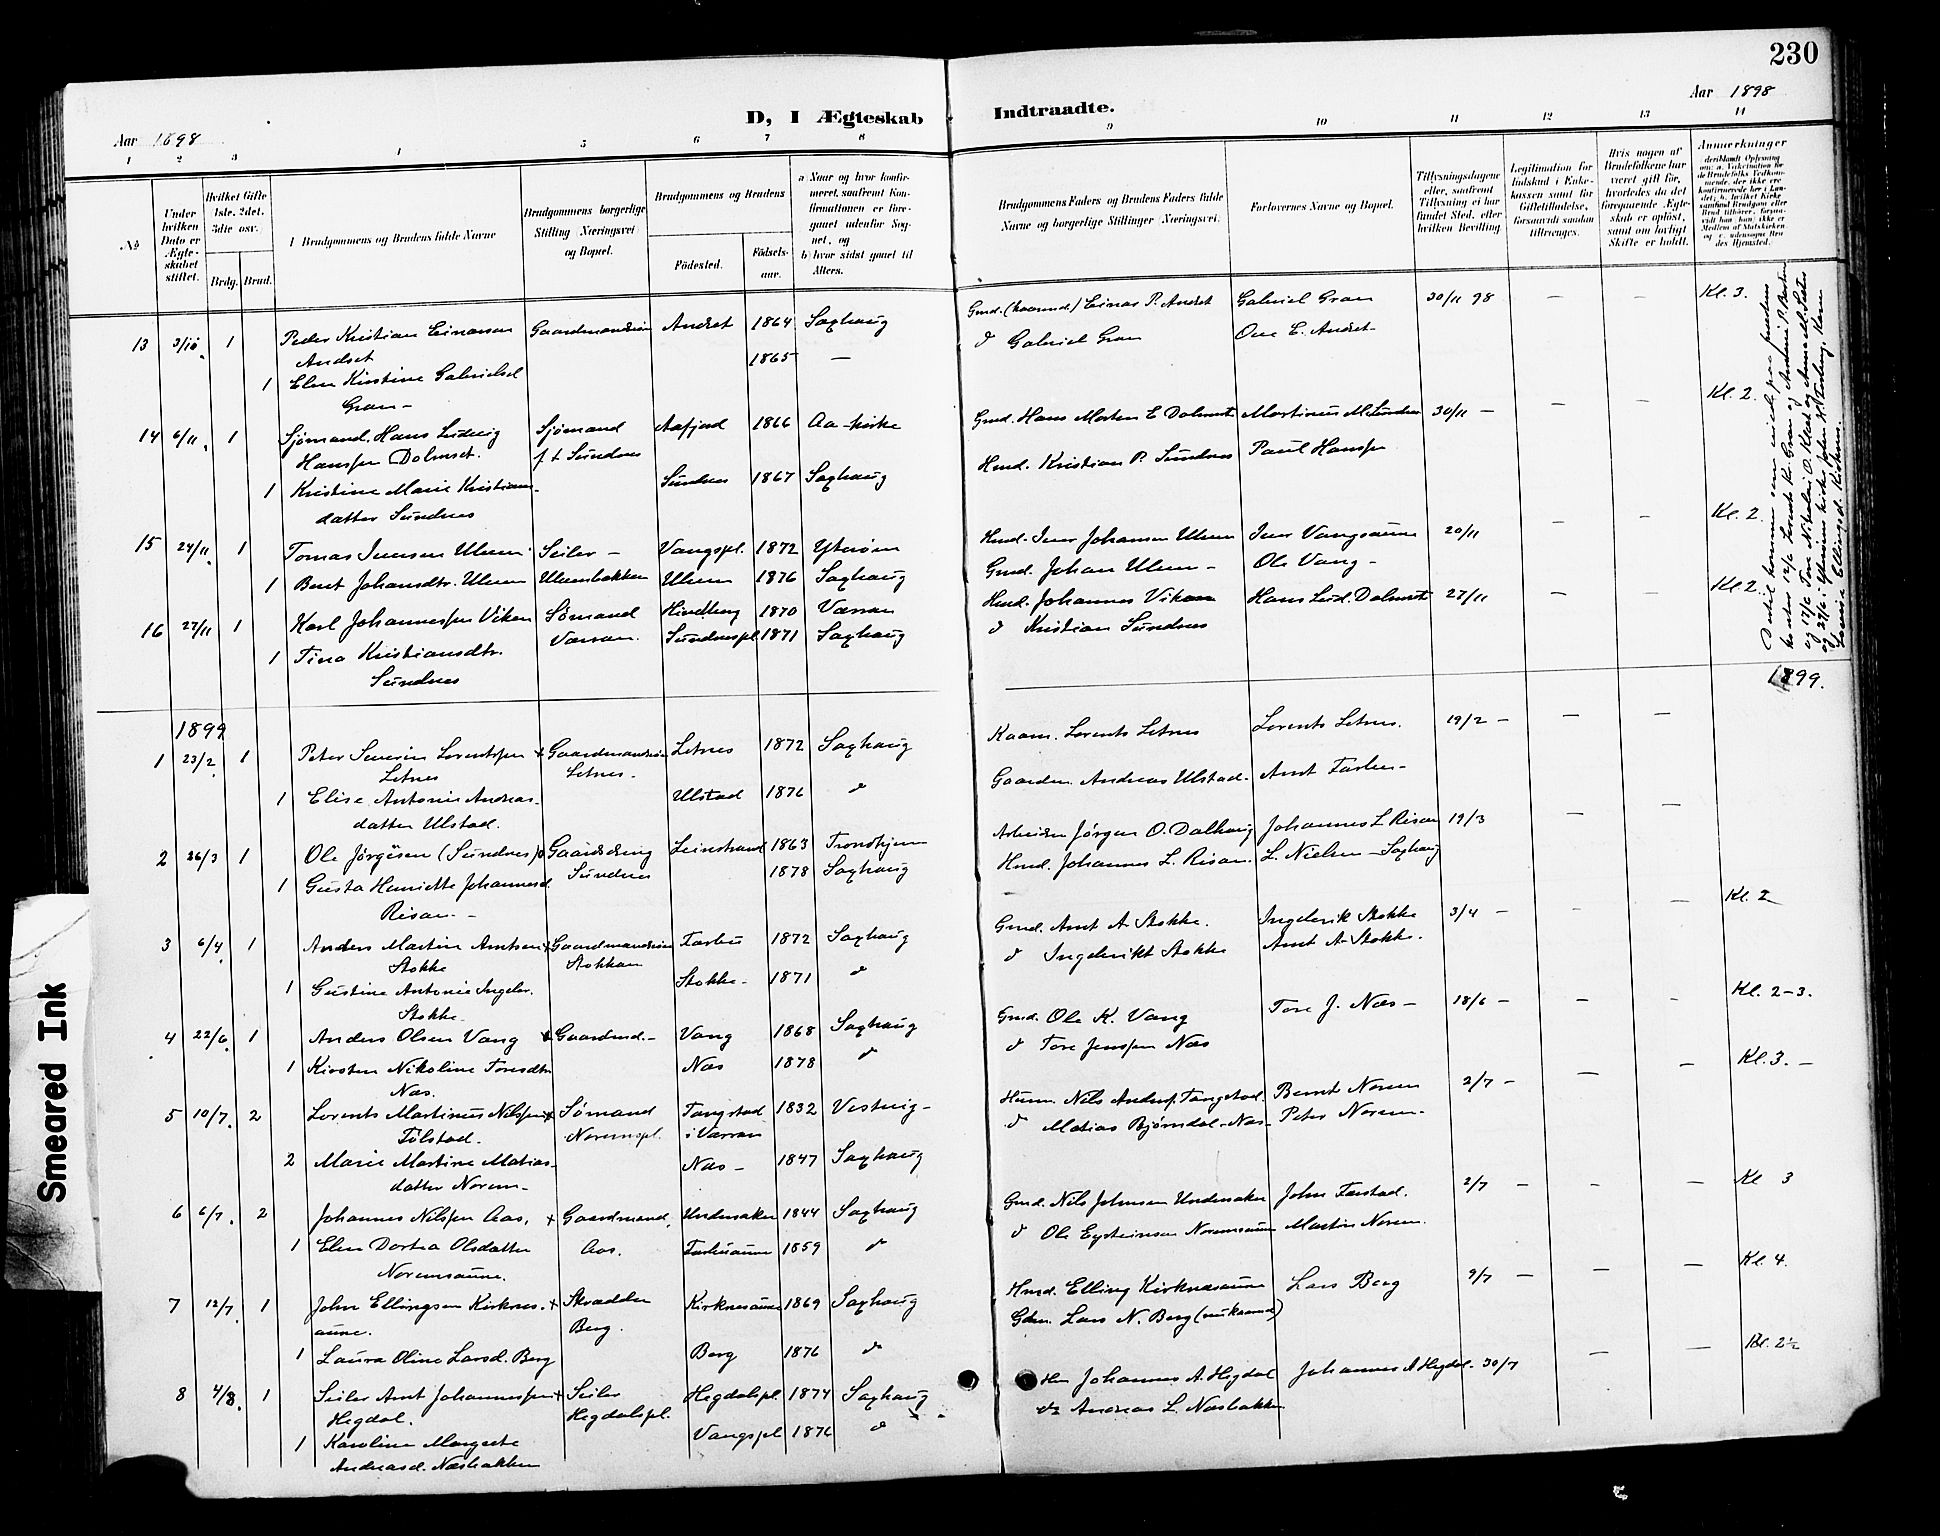 230
Aar 1898
D, I Ægteskab Indtraadte.
Aar 1898
1 2 3 4 5 6 7 8 9 10 11 12 13 14
No
Under hvilken Dato er Ægteskabet stiftet.
Hvilket Gifte 1ste, 2det, 3die osv.
Brdg. Brud.
Brudgommens og Brudens fulde Navne
Brudgommens borgerlige Stilling (Næringsvei) og Bopæl.
Brudgommens og Brudens
Födested.
Födselsaar.
a) Naar og hvor konfirmeret, saafremt Konfirmationen er foregaaet udenfor Sognet, og
b) hvor sidst gaaet til Alters.
Brudgommens Faders og Brudens Faders fulde Navne og borgerlige Stillinger (Næringsvei).
Forlovernes Navne og Bopæl.
Tillysningsdagene eller, saafremt Tillysning ei har fundet Sted, efter hvilken Bevilling.
Legitimation for Indskud i Enkekassen samt for Giftetilladelse, forsaavidt saadan tiltrænges.
Hvis nogen af Brudefolkene har været gift før, hvorledes da det foregaaende Ægteskab er opløst, samt om lovligt Skifte er holdt.
Anmerkninger
13 3/10. 1 Peder Kristian Einarsen Gaardmandssøn Andset 1864 Saxhaug Gmd. (kaarmd) Einar P. Andset Gabriel Gran 30/11 98 — — Kl. 3.
Andset 1865 — d Gabriel Gran Ove E. Andset
1 Elen Kirstine Gabrielsd
Gran —
14 6/11. 1 Sjömand. Hans Ludvig Sjömand Aafjord 1866 Aa-kirke Gmd. Hans Morten E Dalmset Martinus M. Sundnes 30/11 — — — Kl. 2.
Hanssen Dalmset. f t Sundnes
1 Kristine Marie Kristians- Sundnes 1867 Saxhaug Hmd. Kristian P. Sundnes Paul Hanssen
datter Sundnes
15 24/11. 1 Tomas Iversen Ulven Seiler — Vangspl. 1872 Ytterøen Hmd. Iver Johansen Ulven Iver Vangsaune 20/11 — — Kl. 2
1 Beret Johansdtr. Ulven Ulvenbakken Ulven 1876 Saxhaug Gmd. Johan Ulven — Ole Vang —
16 27/11 1 Karl Johannessen Viken Sømand Hindberg 1870 Værran Hmd. Johannes Viken Hans Lud. Dalmset 27/11 — — Kl. 2
1 Tina Kristiansdtr. Værran. Sundnespl. 1871 Saxhaug d Kristian Sundnes
Sundnes
1899 1899.
1 23/2. 1 Peter Severin Lorentssen + Gaardmandssøn Letnes 1872 Saxhaug Kaarm. Lorents Letnes Lorents Letnes. 19/2 — — —
Letnes Letnes.
1 Elise Antonie Andreas- Ulstad 1876 d Gaardm. Andreas Ulstad. Arnt Farbu —
datter Ulstad.
2 26/3 1 Ole Jørgesen (Sundnes) Gaardsdreng Leinstrand 1863 Trondhjem Arbeider Jørgen O. Dalhaug Johannes L Risan 19/3 — —
1 Gusta Henriette Johannesd. Sundnes 1878 Saxhaug Hmd. Johannes L. Risan. L. Nielsen — Saxhaug
Risan. —
3 6/4. 1 Anders Martin Arntsen + Gaardmandssøn Farbu 1872 Saxhaug Gmd. Arnt A Stokke. Ingebrik Stokke 3/4 — — — Kl. 2
Stokke Stokkan
1 Gustine Antonie Ingebr. Stokke — 1871 d d Ingebrikt Stokke Arnt A Stokke.
Stokke
4 22/6. 1 Anders Olsen Vang + Gaardmd. — Vang 1868 Saxhaug Gmd. Ole K. Vang Tore J. Næs — 18/6 — — — Kl. 2-3.
1 Kirsten Nikoline Toresdtr. Næs 1878 d d Tore Jenssen Næs
Næs.
5 10/7. 2 Lorents Martinus Nilssen + Sømand Tangstad 1832 Vestvig — Husm. Nils Anders. Tangstad. Bernt Norem 2/7 — — — Kl. 3. —
Tilstad. Noremspl. i Værran
2 Marie Martine Matias- Næs — 1847 Saxhaug d Matias Bjørndal — Næs — Peter Norem —
datter Norem —
6 6/7. 2 Johannes Nilssen Aas. + Gaardmand, Undersaker 1844 Saxhaug Gmd. Nils Johnsen Undersaker John Farstad. 2/7 — — — Kl 3
1 Elen Dortea Olsdatter Aas. Farbuaune 1859 d d Ole Eysteinsen Noremsaune Martin Norem.
Noremsaune.
7 12/7. 1 John Ellingsen Kirknes- + Skrædder Kirknesaune 1869 Saxhaug Hmd. Elling Kirknesaune Lars Berg 9/7 — — — Kl. 4.
aune. Berg.
1 Laura Oline Larsd. Berg Berg 1876 d Gdm. Lars N. Berg (nu kaarmd)
8 4/8. 1 Seiler Arnt Johannessen + Seiler Hegdalspl. 1874 Saxhaug Hm Johannes A. Hegdal Johannes A Hegdal — 30/7 — — Kl. 2½
Hegdal. Hegdalspl.
1 Karoline Margrete Vangspl 1876 d do Andreas L. Næsbakken
Andreasd. Næsbakken
Smeared Ink